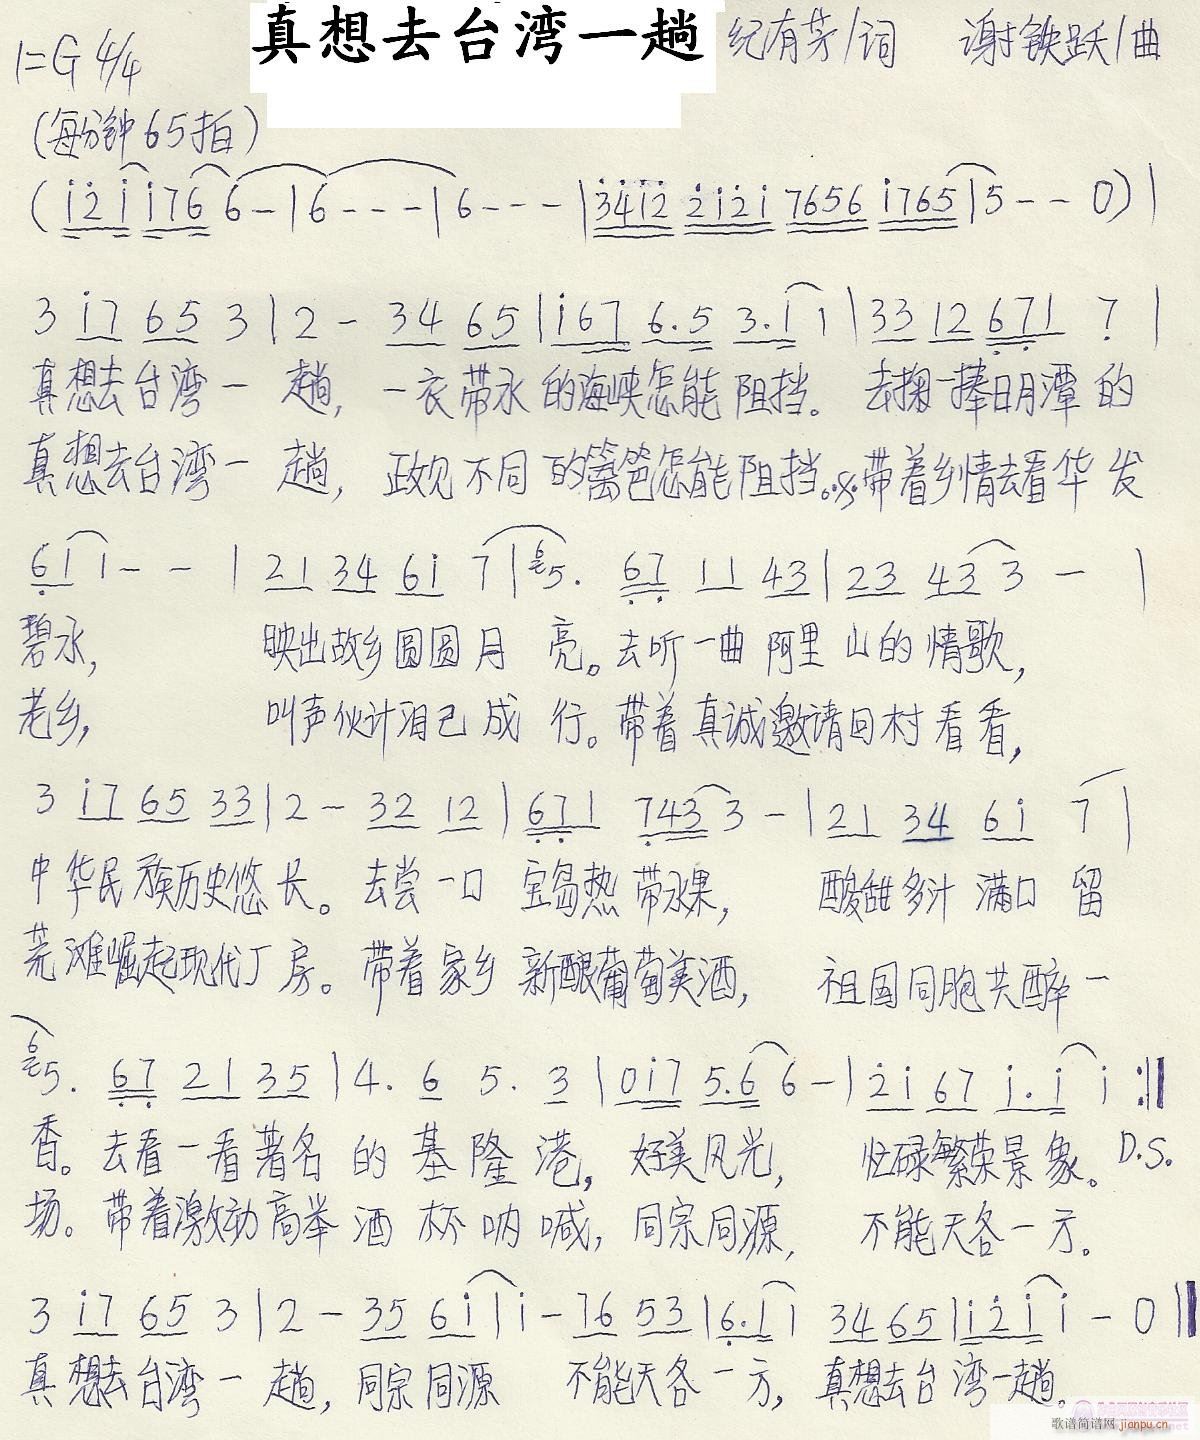 真想去台湾一趟 纪有芳/词 谢铁跃/曲
1=G 4/4
(每分钟65拍)
(i2i i76 6-|6---|6---|34i2 2i2i 7656 i765|5--0)|
3 i7 65 3|2- 34 65|i67 6.5 3.i i|33 12 671 7|
真想去台湾一 趟, 一衣带水的海峡怎能阻挡。 去掬一捧日月潭的
真想去台湾一 趟, 政见不同的篱笆怎能阻挡。带着乡情去看华发
61 1--|21 34 6i 7|65. 67 11 43|23 43 3-|
碧水, 映出故乡圆圆月 亮。去听一曲阿里山的情歌,
老乡, 叫声伙计泪已成 行。带着真诚邀请回村看看,
3 i7 65 33|2- 32 12|671 743 3-|21 34 6i 7|
中华民族历史悠长。去尝一口 宝岛热带水果, 酸甜多汁满口留
荒滩崛起现代厂房。带着家乡 新酿葡萄美酒, 祖国同胞共醉一
65. 67 21 35|4. 6 5. 3|0i7 5.6 6-|2i 67 i.i i:‖
香。去看一看著名的基隆港, 好美风光, 忙碌繁荣景象。D.S.
场。带着激动高举酒杯呐喊, 同宗同源, 不能天各一方。
3 i7 65 3|2- 35 6i|i- 76 53|6.1 1 34 65|i2i i-0‖
真想去台湾一 趟, 同宗同源 不能天各一方, 真想去台湾一趟。
歌谱简谱网 jianpu.cn